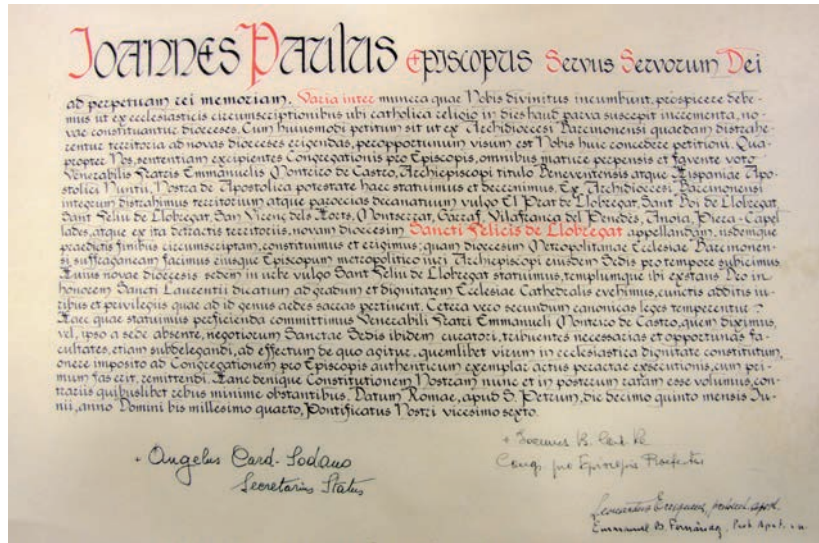 Joannes Paulus Episcopus Servus Servorum Dei
ad perpetuam rei memoriam. Varia inter munera quae Nobis divinitus incumbunt, prospicere debe-
mus ut ex ecclesiasticis circumscriptionibus ubi catholica religio in dies haud parva suscepit incrementa, no-
vae constituantur dioceses. Cum huiusmodi petitum sit ut ex Archidiocesi Barcinonensi quaedam distrahe-
rentur territoria ad novas dioceses erigendas, peropportunum visum est Nobis huic concedere petitioni. Qua-
propter Nos, sententiam excipientes Congregationis pro Episcopis, omnibus mature perpensis et favente voto
Venerabilis Fratris Emmanuelis Monteiro de Castro, Archiepiscopi titulo Beneventensis atque Hispaniae Apo-
stolici Nuntii, Nostra de Apostolica potestate haec statuimus et decernimus. Ex Archidiocesi Barcinonensi
integrum distrahimus territorium atque paroecias decanatuum vulgo El Prat de Llobregat, Sant Boi de Llobregat,
Sant Feliu de Llobregat, San Vicenç dels Horts, Montserrat, Garraf, Vilafranca del Penedès, Anoia, Piera-Capel
lades, atque ex ita detractis territoriis, novam diocesim Sancti Felicis de Llobregat appellandam, iisdemque
praedictis finibus circumscriptam, constituimus et erigimus; quam diocesim Metropolitanae Ecclesiae Barcinonen-
si suffraganeam facimus eiusque Episcopum metropolitico iuri Archiepiscopi eiusdem Sedis pro tempore subicimus.
Huius novae diocesis sedem in urbe vulgo Sant Feliu de Llobregat statuimus, templumque ibi exstans Deo in
honorem Sancti Laurentii dicatum ad gradum et dignitatem Ecclesiae Cathedralis evehimus, cunctis additis iu-
ribus et privilegiis quae ad id genus aedes sacras pertinent. Cetera vero secundum canonicas leges temperentur.
Haec quae statuimus perficienda committimus Venerabili Fratri Emmanueli Monteiro de Castro, quem diximus,
vel, ipso a sede absente, negotiorum Sanctae Sedis ibidem curatori, tribuentes necessarias et opportunas fa-
cultates, etiam subdelegandi, ad effectum de quo agitur, quemlibet virum in ecclesiastica dignitate constitutum,
onere imposito ad Congregationem pro Episcopis authenticum exemplar actus peractae exsecutionis, cum pri-
mum fas erit, remittendi. Hanc denique Constitutionem Nostram nunc et in posterum ratam esse volumus, con-
trariis quibuslibet rebus minime obstantibus. Datum Romae, apud S. Petrum, die decimo quinto mensis Iu-
nii, anno Domini bis millesimo quarto, Pontificatus Nostri vicesimo sexto.
+ Angelus Card. Sodano
Secretarius Status
+ Joannes B. Card. Re
Congr. pro Episcopis Praefectus
Emmanuel B. Fernández, Prot. Apost.